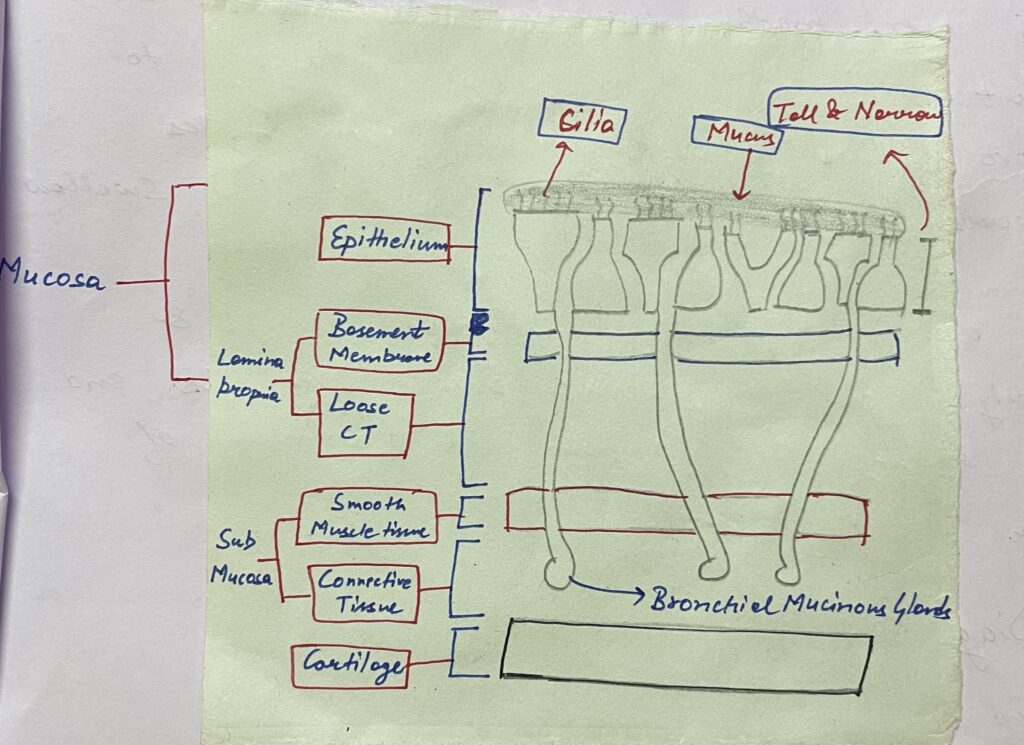 Cilia
Mucus
Tall & Narrow
Epithelium
Mucosa
Basement
Membrane
Lamina
propria
Loose
CT
Smooth
Muscle tissue
Sub
Mucosa
Connective
Tissue
Bronchial Mucinous Glands
Cartilage